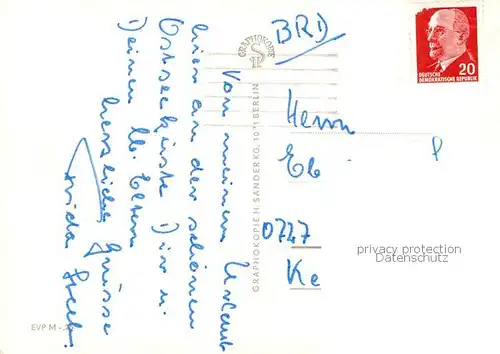 BRD
GRAPHOKOPIE
H S P
DEUTSCHE
DEMOKRATISCHE REPUBLIK
20
Von meinem Urlaub
hier an der schönen
Ostseeküste Dir u.
Deinen lb. Eltern
herzliche Grüsse
GRAPHOKOPIE H. SANDER KG. 1071 BERLIN
Herrn
Eb
0727
Ke
privacy protection
Datenschutz
EVP M -,